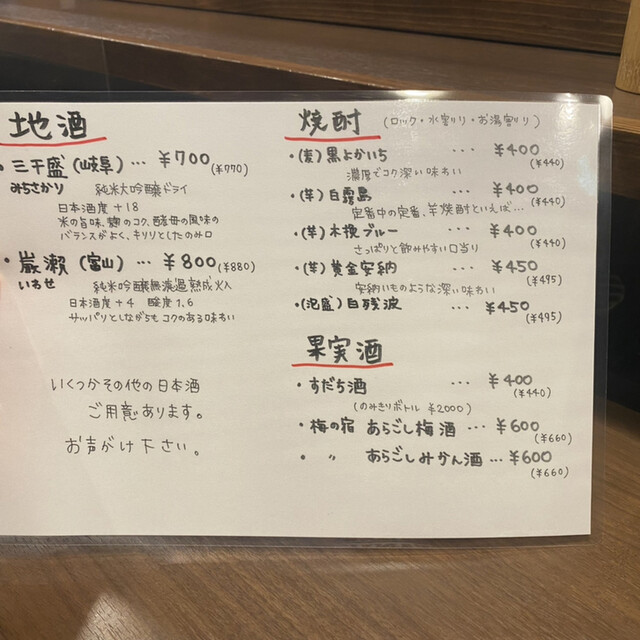 地酒
・三千盛(岐阜) … ¥700 (¥770)
みちさかり 純米大吟醸ドライ
日本酒度 +18
米の旨味、麹のコク、酵母の風味の
バランスがよく、キリリとしたのみ口
・巌瀬(富山) … ¥800 (¥880)
いわせ 純米吟醸無濾過熟成火入
日本酒度 +4 酸度1.6
サッパリとしながらも コクのある味わい
いくつかその他の日本酒
ご用意あります。
お声がけ下さい。
焼酎 (ロック・水割り・お湯割り)
・(麦)黒よかいち … ¥400 (¥440)
濃厚でコク深い味わい
・(芋)白霧島 … ¥400 (¥440)
定番中の定番、芋焼酎といえば…
・(芋)木挽ブルー … ¥400 (¥440)
さっぱりと飲みやすい口当り
・(芋)黄金安納 … ¥450 (¥495)
安納いものような深い味わい
・(泡盛)白残波 … ¥450 (¥495)
果実酒
・すだち酒 … ¥400 (¥440)
(のみきりボトル ¥2000)
・梅の宿 あらごし梅酒 … ¥600 (¥660)
・ 〃 あらごしみかん酒 … ¥600 (¥660)